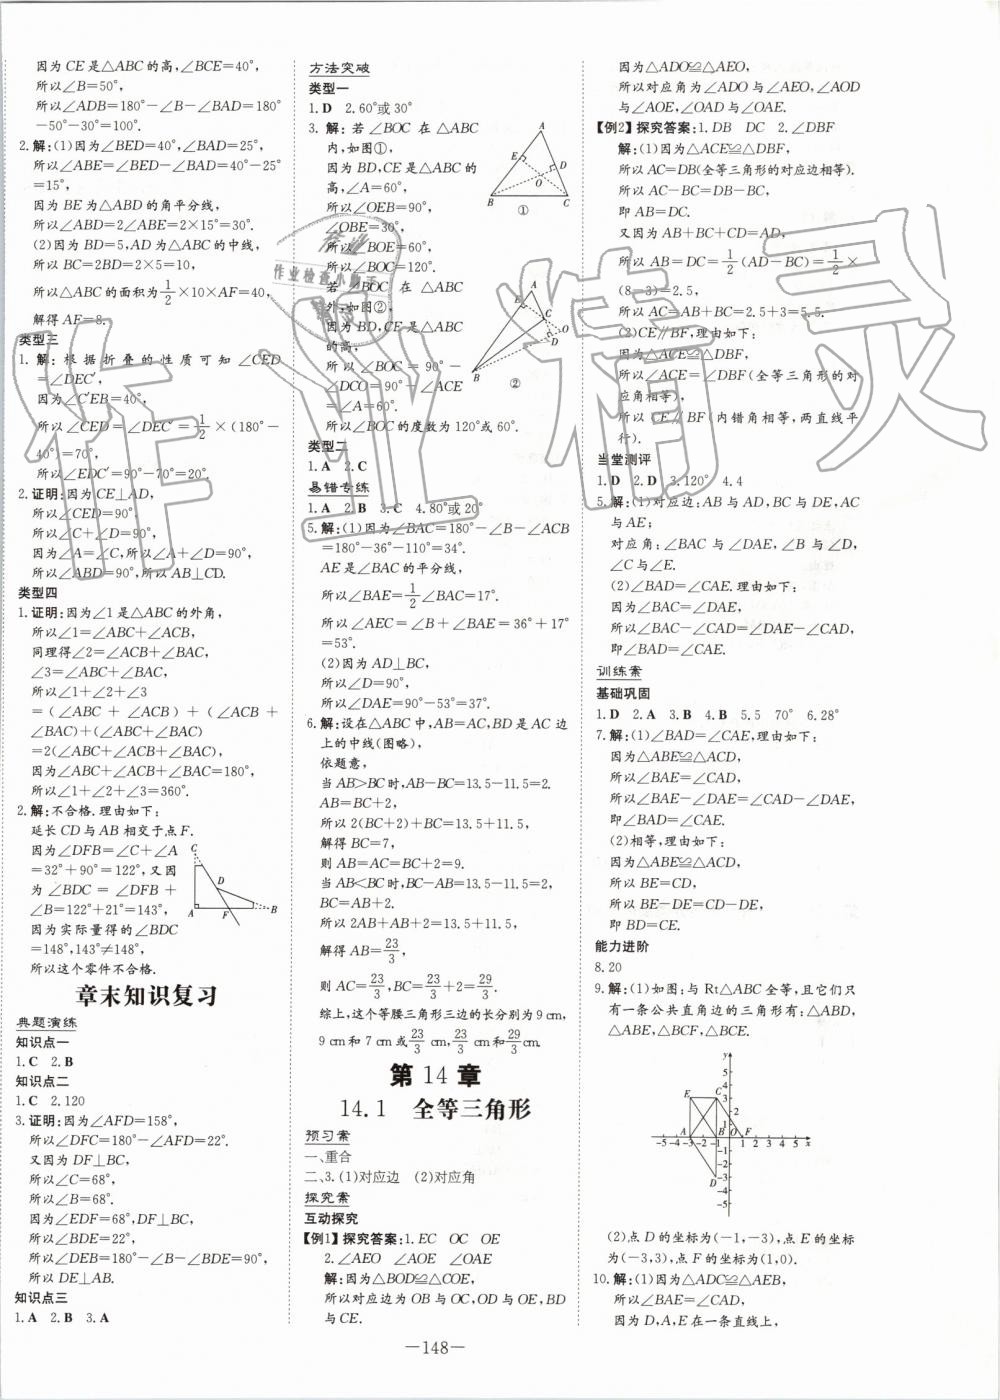 因为CE是△ABC的高,∠BCE=40°,
所以∠B=50°,
所以∠ADB=180°-∠B-∠BAD=180°
-50°-30°=100°.
2.解:(1)因为∠BED=40°,∠BAD=25°,
所以∠ABE=∠BED-∠BAD=40°-25°
=15°,
因为BE为△ABD的角平分线,
所以∠ABD=2∠ABE=2×15°=30°.
(2)因为BD=5,AD为△ABC的中线,
所以BC=2BD=2×5=10,
所以△ABC的面积为1/2×10×AF=40,
解得AF=8.
类型三
1.解:根据折叠的性质可知∠CED
=∠DEC′,
因为∠C′EB=40°,
所以∠CED=∠DEC′=1/2×(180°-
40°)=70°,
所以∠EDC′=90°-70°=20°.
2.证明:因为CE⊥AD,
所以∠CED=90°,
所以∠C+∠D=90°,
因为∠A=∠C,所以∠A+∠D=90°,
所以∠ABD=90°,所以AB⊥CD.
类型四
1.证明:因为∠1是△ABC的外角,
所以∠1=∠ABC+∠ACB,
同理得∠2=∠ACB+∠BAC,
∠3=∠ABC+∠BAC,
所以∠1+∠2+∠3
=(∠ABC+∠ACB)+(∠ACB+
∠BAC)+(∠ABC+∠BAC)
=2(∠ABC+∠ACB+∠BAC),
因为∠ABC+∠ACB+∠BAC=180°,
所以∠1+∠2+∠3=360°.
2.解:不合格.理由如下:
延长CD与AB相交于点F.
因为∠DFB=∠C+∠A
=32°+90°=122°,又因
为∠BDC=∠DFB+
∠B=122°+21°=143°,
因为实际量得的∠BDC
=148°,143°≠148°,
所以这个零件不合格.
C
D
A F B
章末知识复习
典题演练
知识点一
1.C 2.B
知识点二
1.C 2.120
3.证明:因为∠AFD=158°,
所以∠DFC=180°-∠AFD=22°.
又因为DF⊥BC,
所以∠C=68°.
所以∠B=68°.
因为∠EDF=68°,DF⊥BC,
所以∠BDE=22°,
所以∠DEB=180°-∠B-∠BDE=90°,
所以DE⊥AB.
知识点三
1.A 2.B 3.A
方法突破
类型一
1.D 2.60°或30°
3.解:若∠BOC在△ABC
内,如图①,
因为BD,CE是△ABC的
高,∠A=60°,
所以∠OEB=90°,
∠OBE=30°,
所以∠BOE=60°,
所以∠BOC=120°.
若∠BOC在△ABC
外,如图②,
因为BD,CE是△ABC
的高,
所以∠BOC=90°-
∠DCO=90°-∠ACE
=∠A=60°.
所以∠BOC的度数为120°或60°.
A
E D
O
B C
①
A
E
C
O
D
B
②
类型二
1.A 2.C
易错专练
1.A 2.B 3.C 4.80°或20°
5.解:(1)因为∠BAC=180°-∠B-∠ACB
=180°-36°-110°=34°.
AE是∠BAC的平分线,
所以∠BAE=1/2∠BAC=17°.
所以∠AEC=∠B+∠BAE=36°+17°
=53°.
(2)因为AD⊥BC,
所以∠D=90°,
所以∠DAE=90°-53°=37°.
6.解:设在△ABC中,AB=AC,BD是AC边
上的中线(图略),
依题意,
当AB>BC时,AB-BC=13.5-11.5=2.
AB=BC+2,
所以2(BC+2)+BC=13.5+11.5,
解得BC=7,
则AB=AC=BC+2=9.
当AB<BC时,BC-AB=13.5-11.5=2,
BC=AB+2.
所以2AB+AB+2=13.5+11.5,
解得AB=23/3,
则AC=23/3,BC=23/3+2=29/3.
综上,这个等腰三角形三边的长分别为9 cm,
9 cm和7 cm或23/3 cm,23/3 cm和29/3 cm.
第14章
14.1 全等三角形
预习案
一、重合
二、3.(1)对应边 (2)对应角
探究案
互动探究
【例1】探究答案:1.EC OC OE
2.∠AEO ∠AOE ∠OAE
解:因为△BOD≌△COE,
所以对应边为OB与OC,OD与OE,BD
与CE.
因为△ADO≌△AEO,
所以对应角为∠ADO与∠AEO,∠AOD
与∠AOE,∠OAD与∠OAE.
【例2】探究答案:1.DB DC 2.∠DBF
解:(1)因为△ACE≌△DBF,
所以AC=DB(全等三角形的对应边相等).
所以AC-BC=DB-BC,
即AB=DC.
又因为AB+BC+CD=AD,
所以AB=DC=1/2(AD-BC)=1/2×
(8-3)=2.5,
所以AC=AB+BC=2.5+3=5.5.
(2)CE∥BF,理由如下:
因为△ACE≌△DBF,
所以∠ACE=∠DBF(全等三角形的对
应角相等),
所以CE∥BF(内错角相等,两直线平
行).
当堂测评
1.D 2.D 3.120° 4.4
5.解:(1)对应边:AB与AD,BC与DE,AC
与AE;
对应角:∠BAC与∠DAE,∠B与∠D,
∠C与∠E.
(2)∠BAD=∠CAE.理由如下:
因为∠BAC=∠DAE,
所以∠BAC-∠CAD=∠DAE-∠CAD,
即∠BAD=∠CAE.
训练案
基础巩固
1.D 2.A 3.B 4.B 5.5 70° 6.28°
7.解:(1)∠BAD=∠CAE,理由如下:
因为△ABE≌△ACD,
所以∠BAE=∠CAD,
所以∠BAE-∠DAE=∠CAD-∠DAE,
即∠BAD=∠CAE.
(2)相等,理由如下:
因为△ABE≌△ACD,
所以BE=CD,
所以BE-DE=CD-DE,
即BD=CE.
能力进阶
8.20
9.解:(1)如图:与Rt△ABC全等,且它们只
有一条公共直角边的三角形有:△ABD,
△ABE,△BCF,△BCE.
y
5
4
E C 3
2
1
A B O F
-5-4-3-2-1 1 2 3 4 5 x
-1
-2
D -3
-4
-5
(2)点D的坐标为(-1,-3),点E的坐标
为(-3,3),点F的坐标为(1,0).
10.解:(1)因为△ADC≌△AEB,
所以∠BAE=∠CAD,
因为D,A,E在一条直线上,
-148-
作业精灵
作业检查小助手